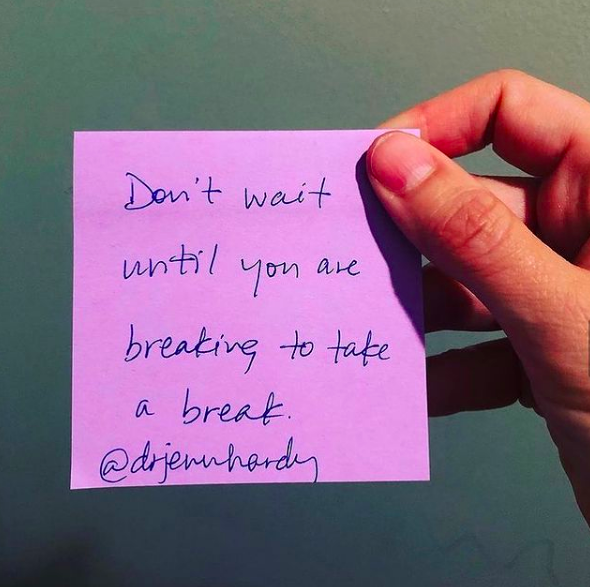 Don't wait
until you are
breaking to take
a break.
@drjennhardy